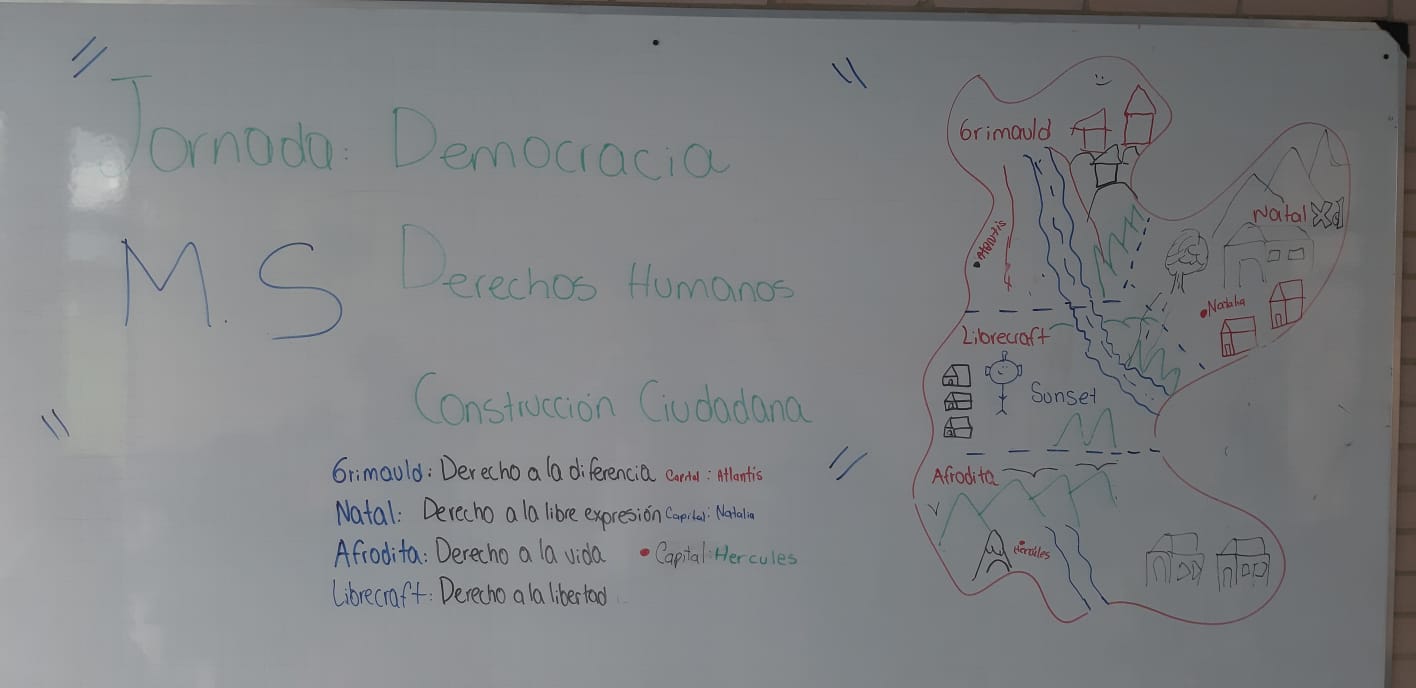 Jornada: Democracia
M. S Derechos Humanos
Construcción Ciudadana
Grimauld: Derecho a la diferencia Capital: Atlantis
Natal: Derecho a la libre expresión Capital: Natalia
Afrodita: Derecho a la vida • Capital: Hercules
Librecraft: Derecho a la libertad
Grimauld
Atlantis
Natal
Natalia
Librecraft
Sunset
Afrodita
Hercules